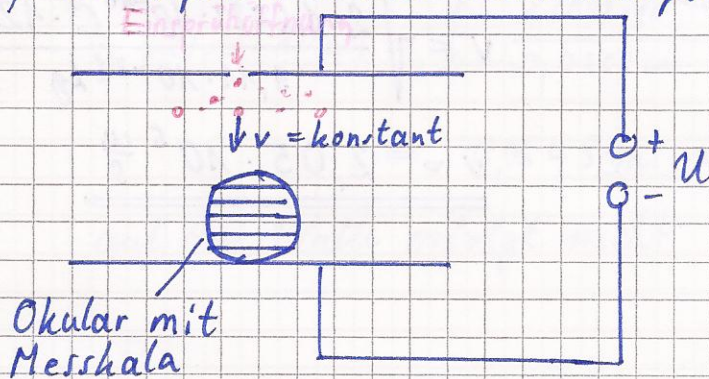 Einsprühöffnung
v = konstant
+
U
-
Okular mit
Messkala